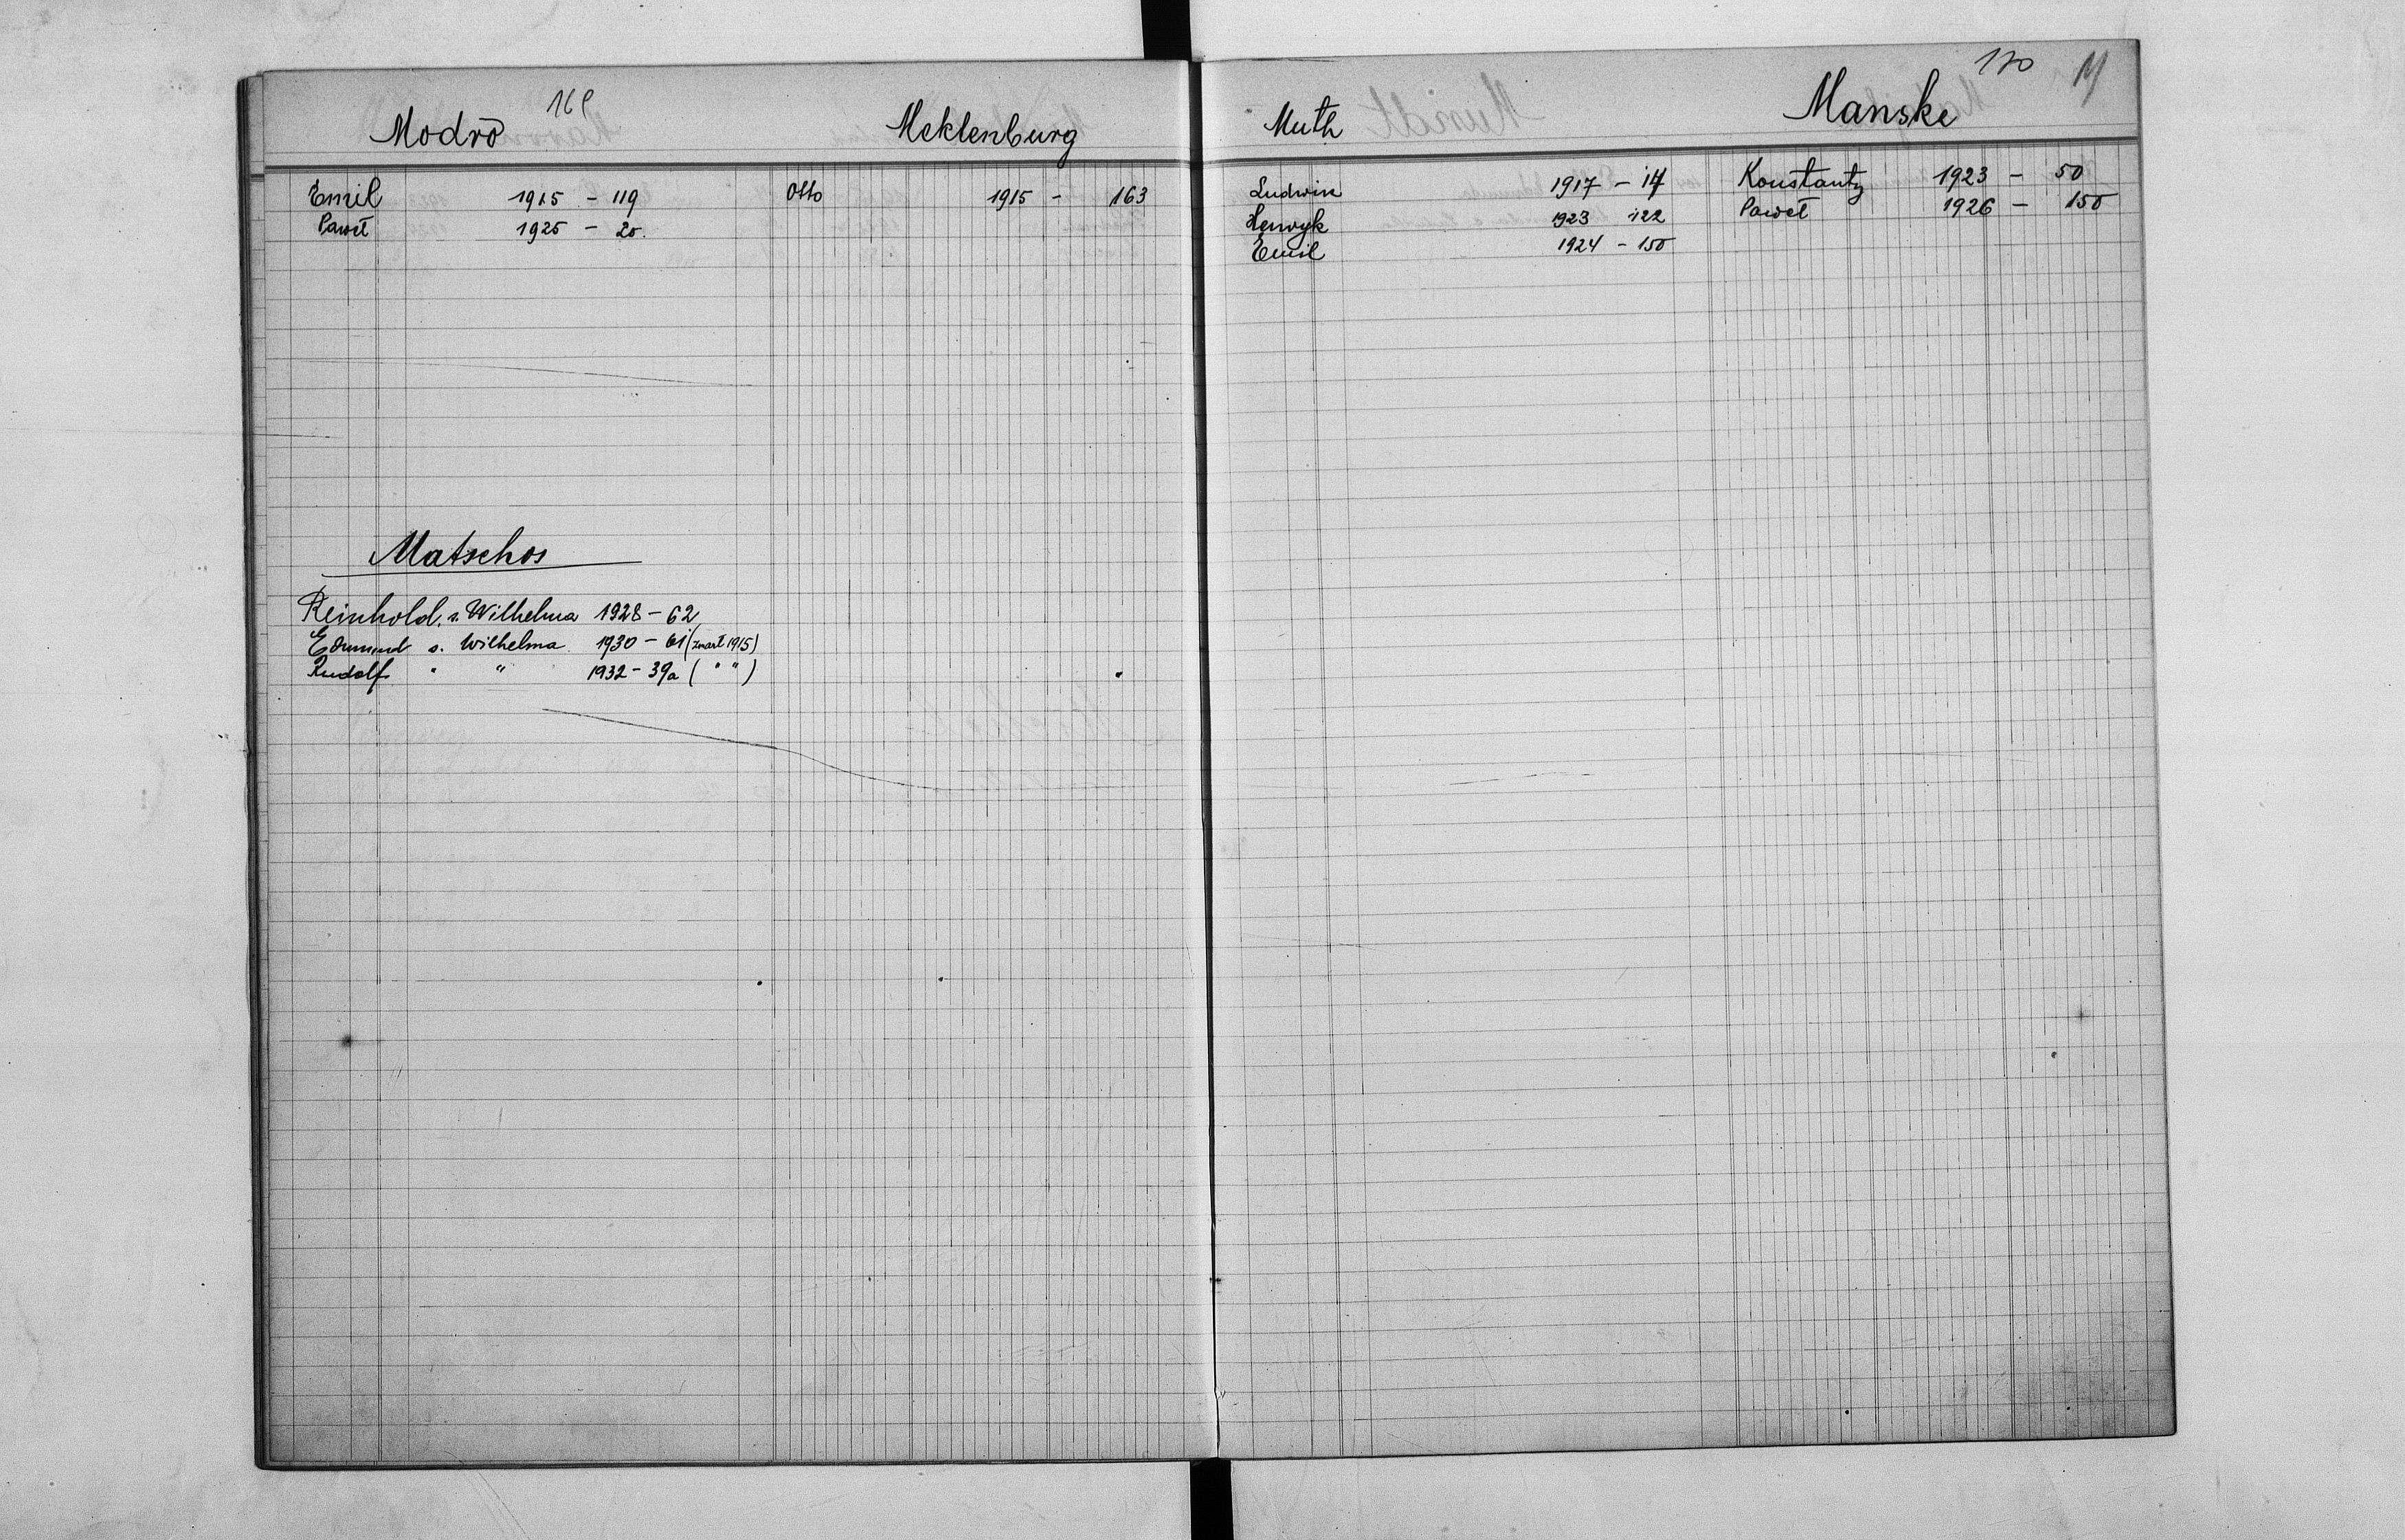 169
Modro
Meklenburg
Emil 1915 - 119
Paweł 1925 - 20.
Otto 1915 - 163
Matschos
Reinhold, s. Wilhelma 1928 - 62
Edmund s. Wilhelma 1930 - 61 (zmarł 1915)
Rudolf " " 1932 - 39a ( " " )
170 M
Muth
Manske
Ludwik 1917 - 14
Henryk 1923 122
Emil 1924 - 150
Konstanty 1923 - 50
Paweł 1926 - 150